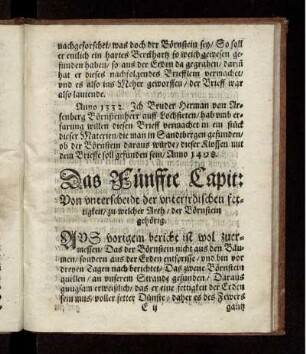 nachgeforschet/ was doch der Börnstein sey/ So soll
er entlich ein hartes Bernhartz so weichgewesen ge-
funden haben/ so aus der Erden da gegraben/ darüm
hat er dieses nachfolgendes Briefflein vermachet/
und es also ins Meher geworffen/ der Brieff war
also lautende.
Anno 1332. Ich Bruder Herman von Ar-
fenberg Börnsteinherr auff Lochsteten/ hab umb er-
farung willen diesen Brieff vermachet in ein stück
dieser Materien/ die man in Sandtbergen gefunden/
ob der Börnstein daraus würde/ dieser Klossen mit
dem Brieffe soll gefunden sein/ Anno 1498.
Das Fünffte Capit:
Von unterscheide der unterirdischen fet-
tigkeit/ zu welcher Arth/ der Börnstein
gehörig.
AUS vorigem bericht ist wol zuer-
messen/ Das der Börnstein nicht aus den Bäu-
men/ sondern aus der Erden entspringe/ und ihn vor
dreyen Tagen nach berichtet/ Das zwene Börnstein
quellen/ an unserem Strande gefunden/ Daraus
gnugsam erweißlich/ das er eine fettigkeit der Erden
sein mus/ voller fetter Dünste/ daher es des Fewers
E ij gantz